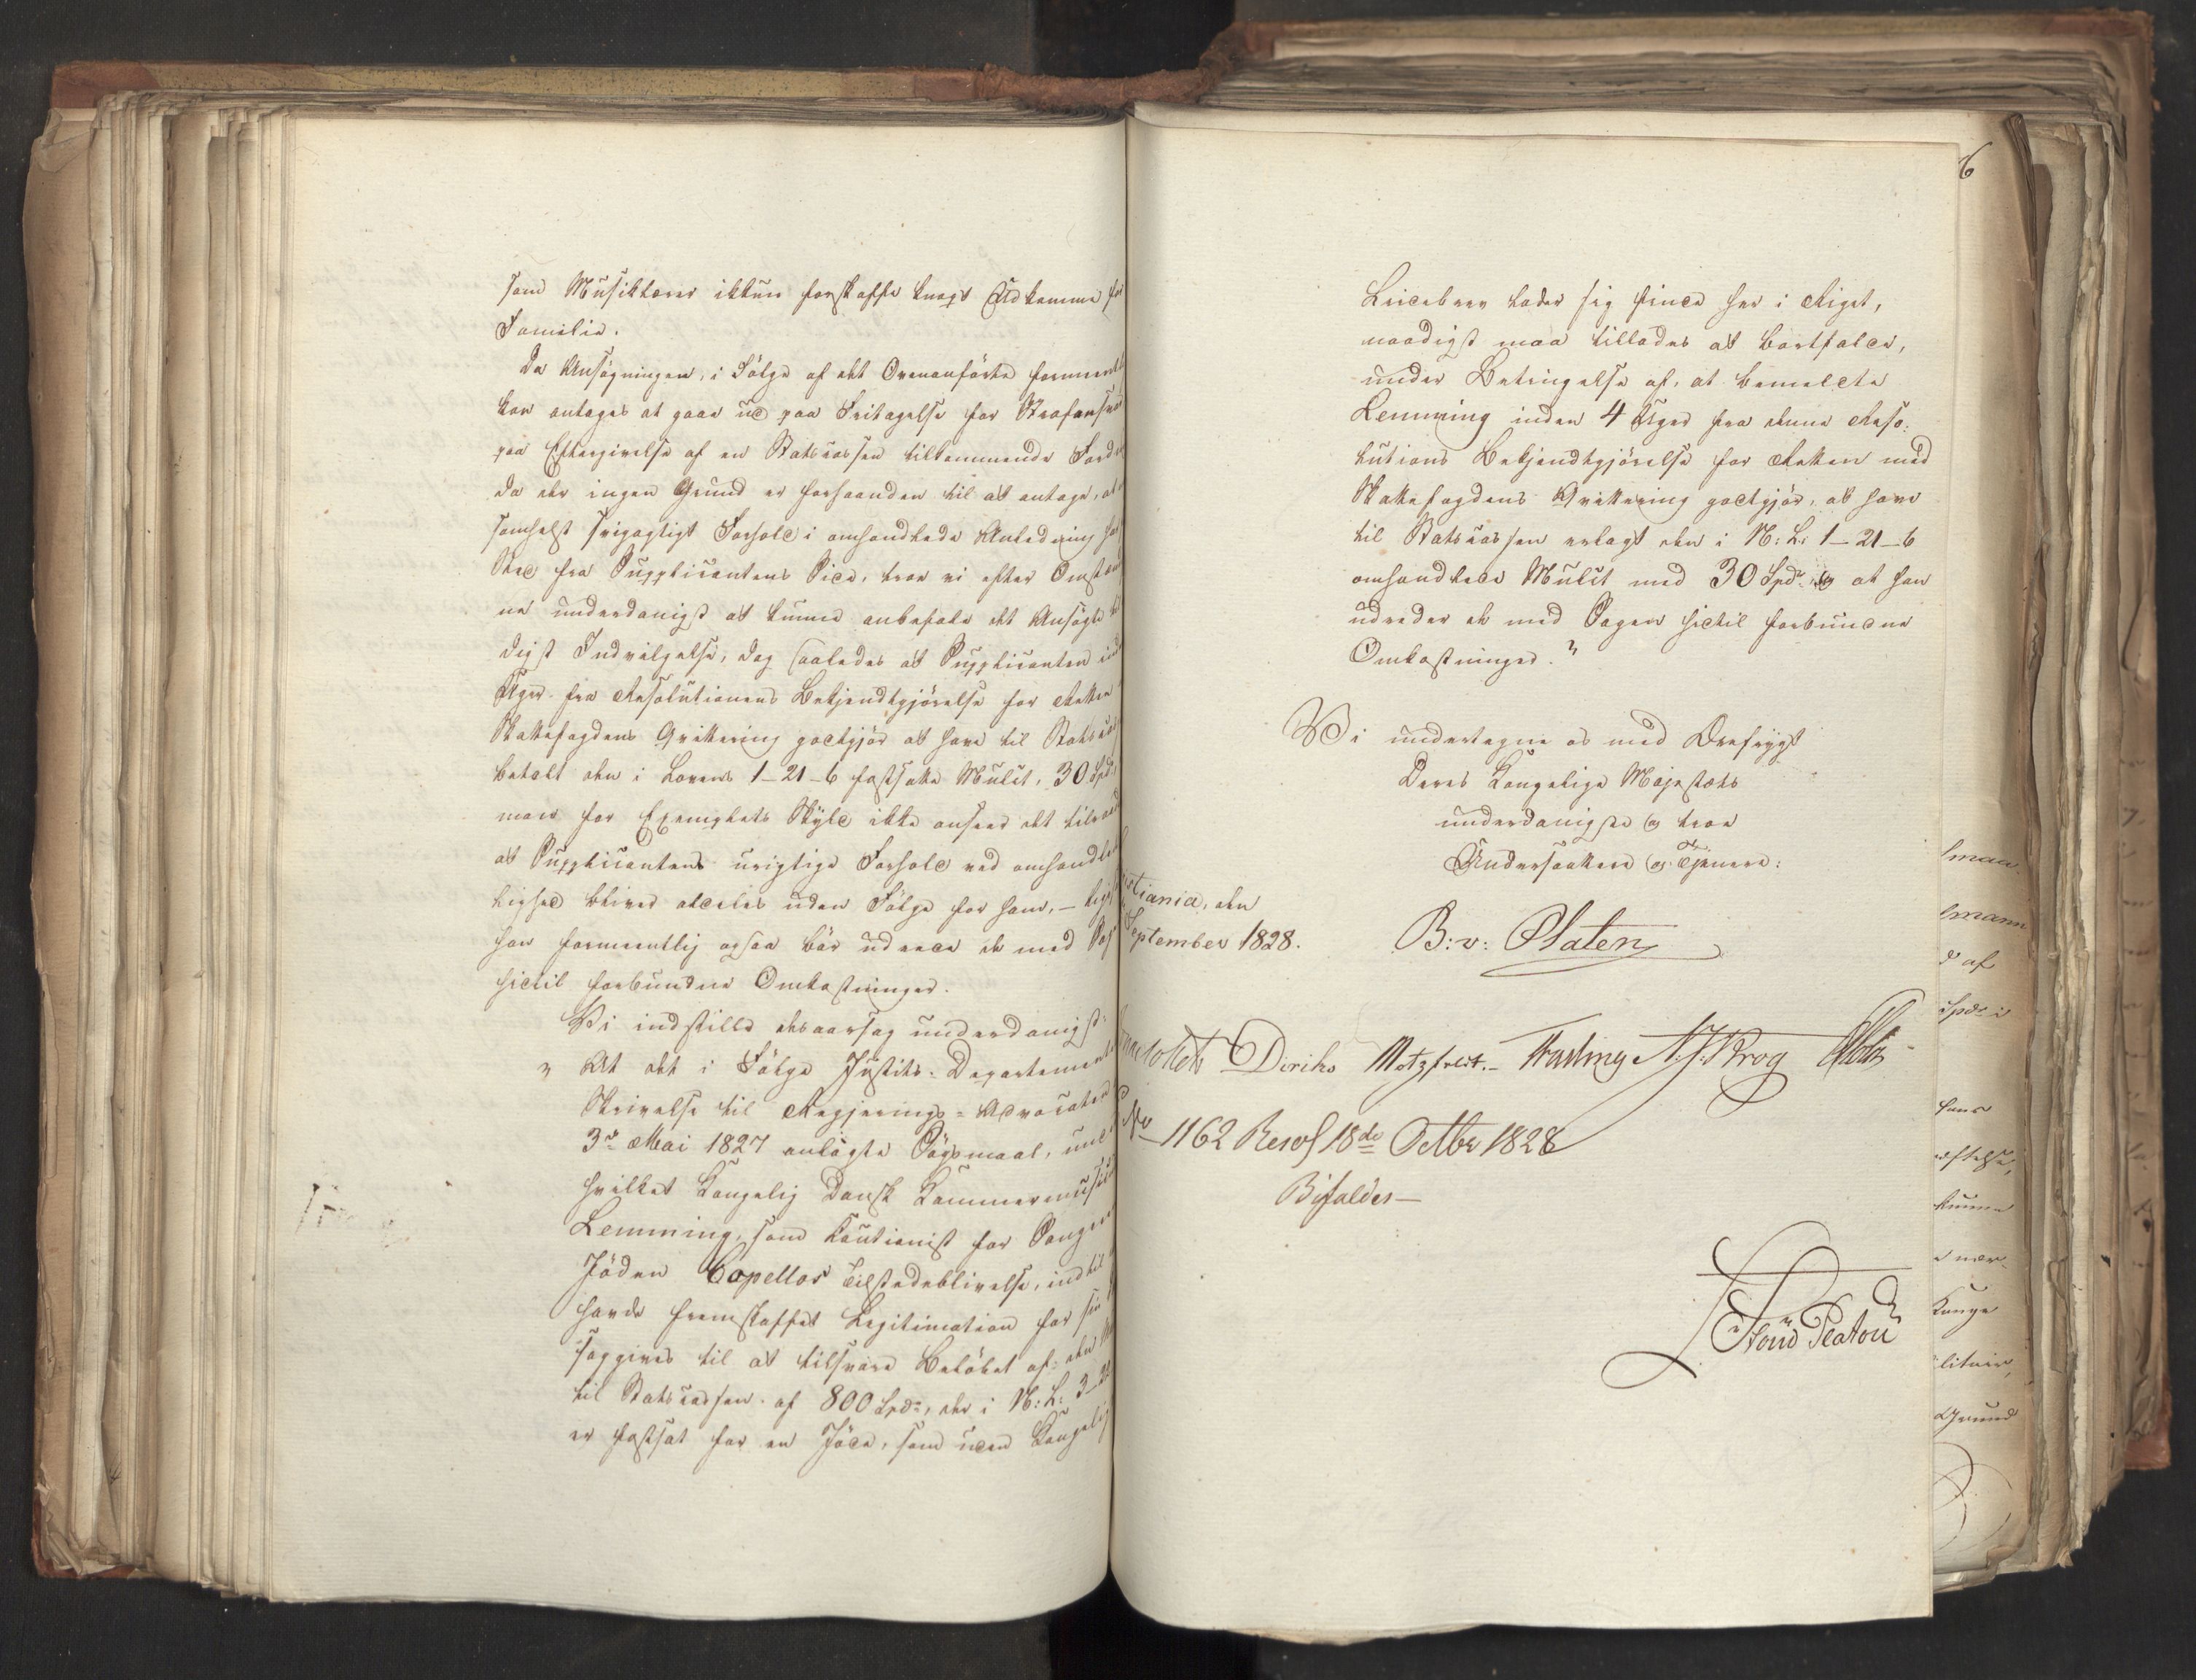 som Musiklærer ikkun forskaffe knapt Udkomme for
Familie.
Da Ansøgningen, i Følge af det Ovenanførte formeentl
kan antages at gaae ud paa Fritagelse for Strafansvar
paa Eftergivelse af en Statscassen tilkommende Fordr
da der ingen Grund er forhaanden til at antage, at
somhelst svigagtigt Forhold i omhandlede Anledning har
Sted fra Supplicantens Side, troe vi efter Omstæn
ne underdanigst at kunne anbefale det Ansøgte til
digst Indvilgelse, dog saaledes at Supplicanten ind
Uger fra Resolutionens Bekjendtgjørelse for Retten
Skattefogdens Qvittering godtgjør at have til Statscas
betalt den i Lovens 1-21-6 fastsatte Mulct, 30 Spd,
man for Exemplets Skyld ikke anseer det tilraad
at Supplicantens urigtige Forhold ved omhandlede
lighed bliver aldeles uden Følge for ham, - lige
han formeentlig ogsaa bør udrede de med Sag
hidtil forbundne Omkostninger.
Vi indstille desaarsag underdanigst:
" At det i Følge Justits-Departements
Skrivelse til Regjerings-Advocaten
3die Mai 1827 anlagte Søgsmaal, und
hvilket Kongelig Dansk Kammermusicus
Lemming, som Cautionist for Sangeren
Jøden Copellos Tilstedeblivelse, indtil
havde fremskaffet Legitimation for sin
søggives til at tilsvare Beløbet af den
til Statscassen af 800 Spdr, der i N: L: 3-22
er fastsat for en Jøde, som uden Kongelig
6
Leidebrev lader sig finde her i Riget,
naadigst maa tillades at bortfalde,
under Betingelse af, at bemeldte
Lemming inden 4 Uger fra denne Reso-
lutions Bekjendtgjørelse for Retten med
Skattefogdens Qvittering godtgjør, at have
til Statscassen erlagt den i N: L: 1-21-6
omhandlede Mulct med 30 Spdr, og at han
udreder de med Sagen hidtil forbundne
Omkostninger."
Vi undertegne os med Ærefrygt
Deres Kongelige Majestæts
underdanigste og troe
Undersaatter og Tjenere:
stiania, den
September 1828.
B: v: Platen
Diriks Motzfeldt. Fasting N. J. Krog Holst
No 1162 Resol 18de Octbr 1828
Bifaldes-